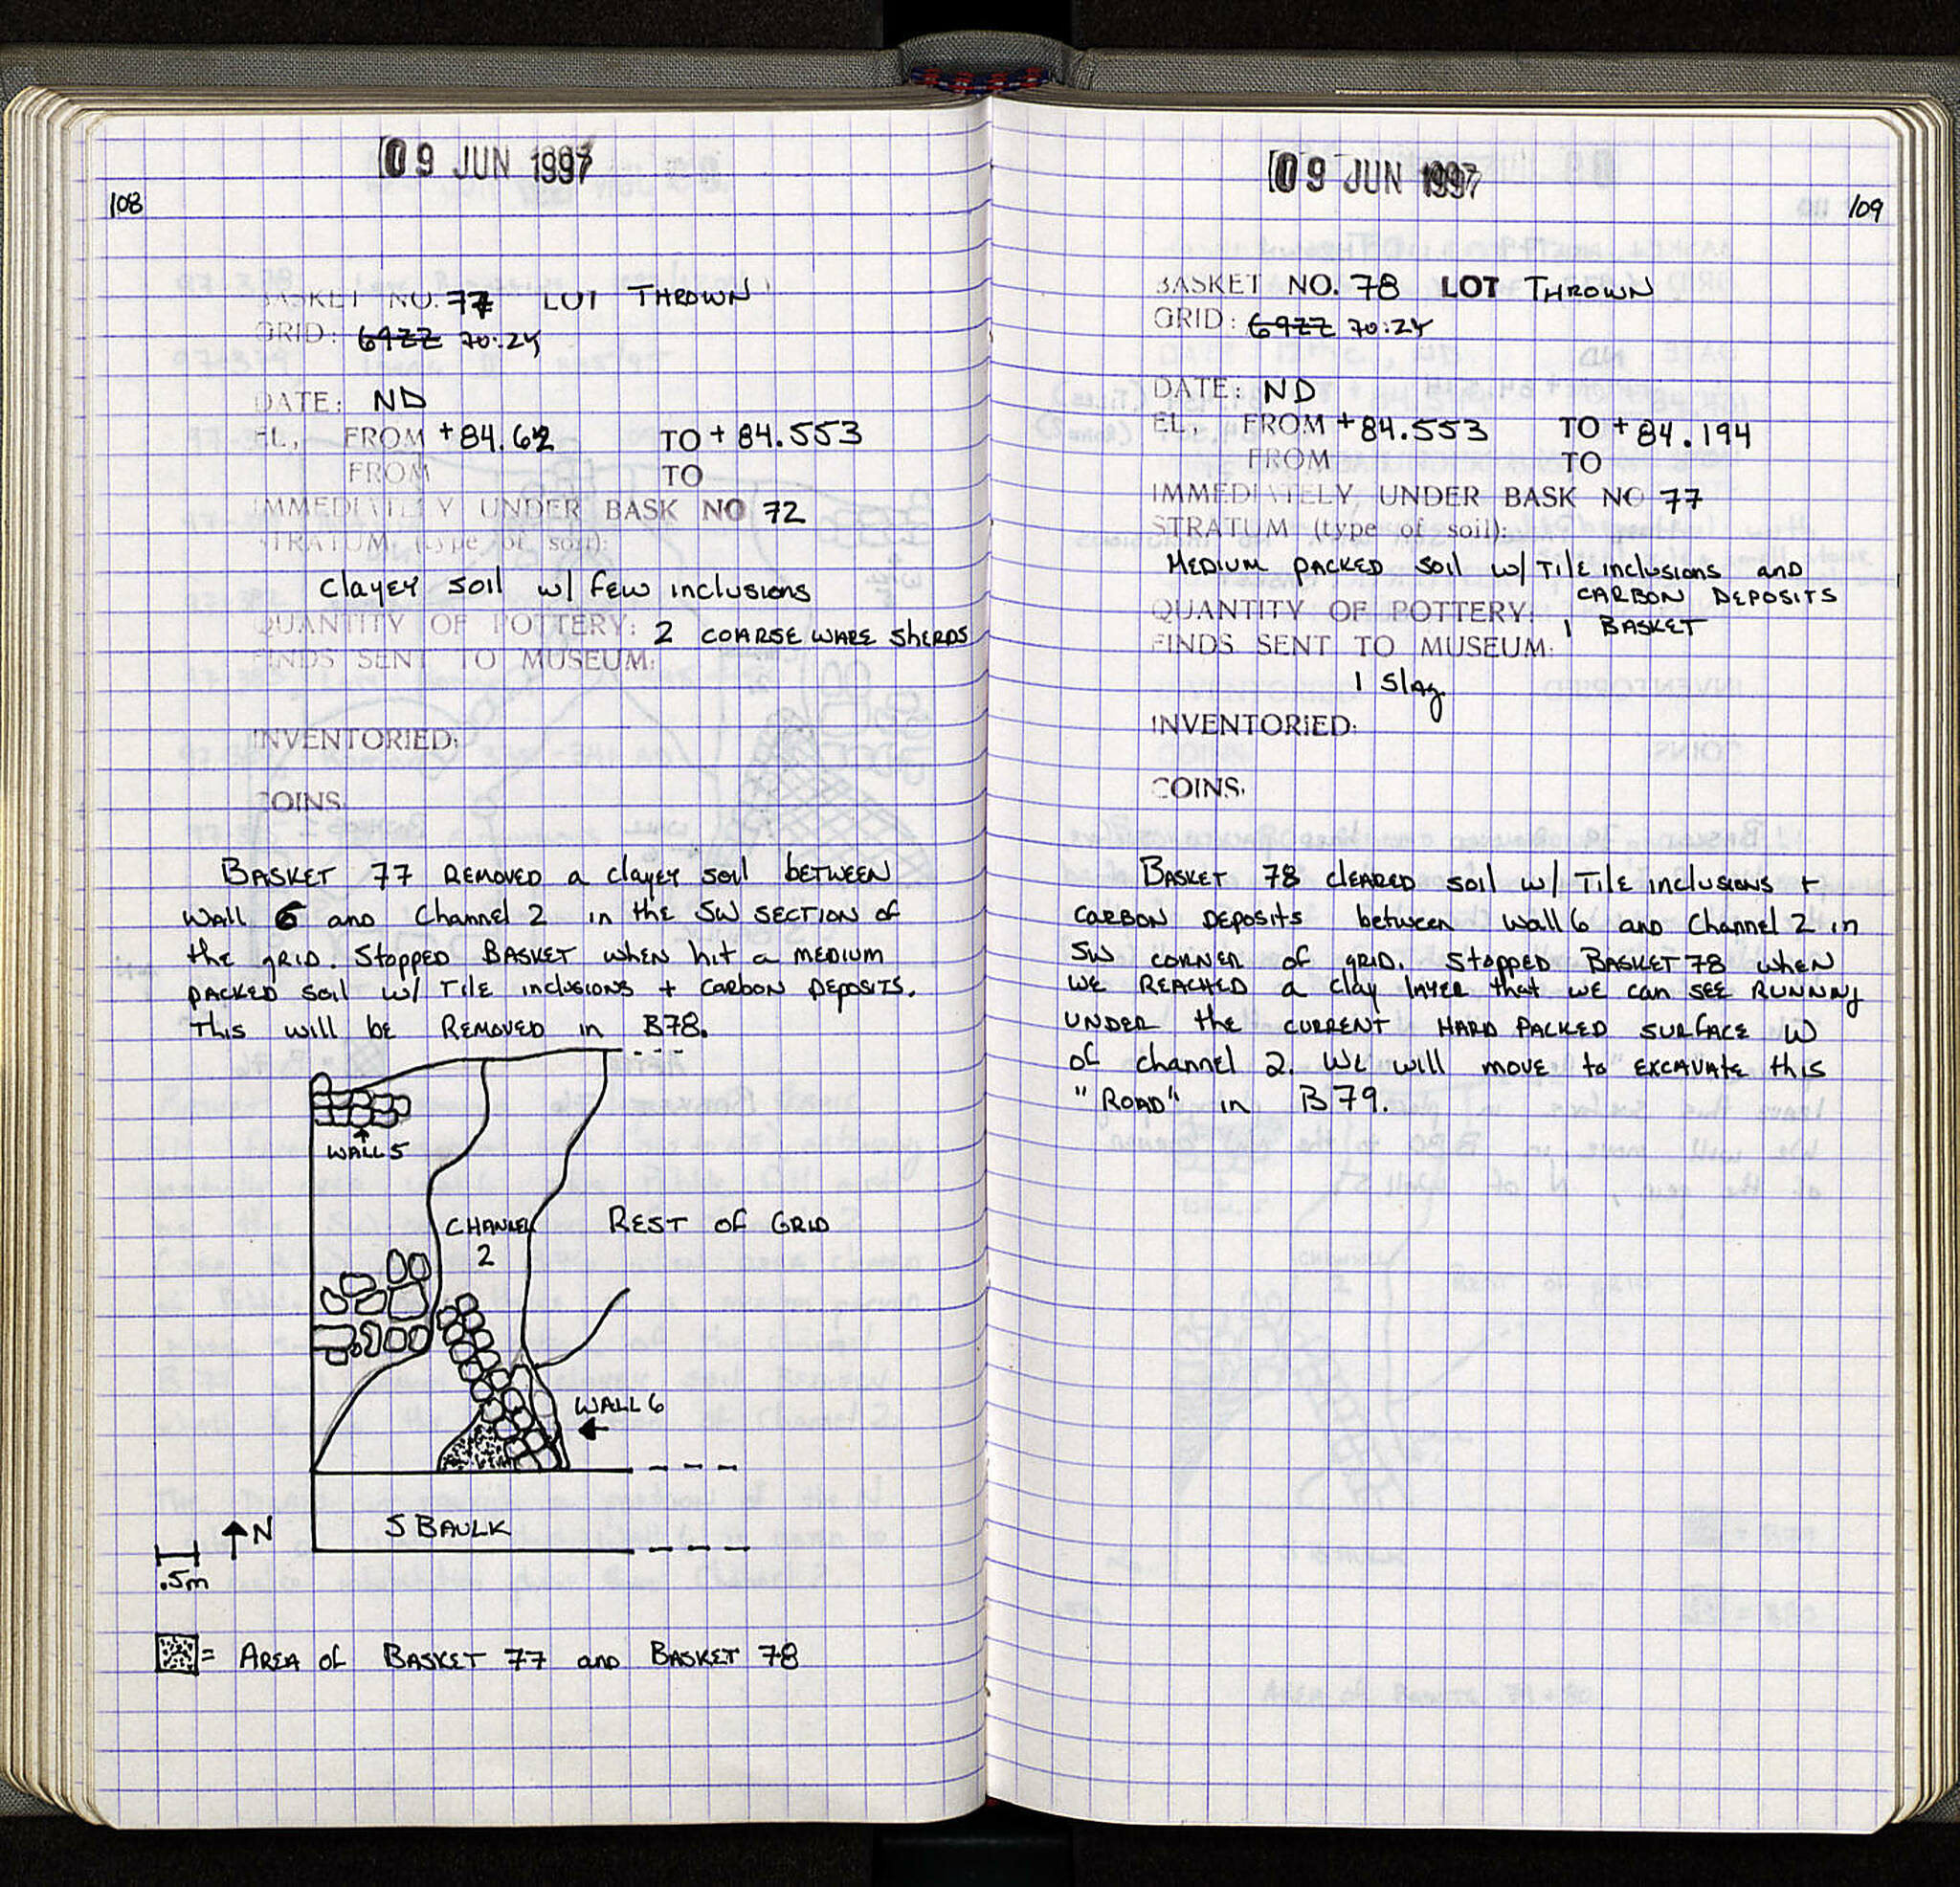 09 JUN 1997
108
BASKET NO. 77 LOT THROWN
GRID: 69ZZ 70:ZY
DATE: ND
EL, FROM +84.62 TO +84.553
FROM TO
IMMEDIATELY UNDER BASK NO 72
STRATUM (type of soil):
clayey soil w/ few inclusions
QUANTITY OF POTTERY: 2 COARSE WARE SHERDS
FINDS SENT TO MUSEUM:
INVENTORIED:
COINS
BASKET 77 REMOVED a clayey soil BETWEEN
Wall 6 and Channel 2 in the SW SECTION OF
the GRID. Stopped BASKET WHEN hit a MEDIUM
PACKED Soil w/ Tile inclusions + Carbon Deposits.
This will be REMOVED in B78.
WALL 5
CHANNEL
2
REST OF GRID
WALL 6
S BAULK
N
.5m
= AREA of BASKET 77 and BASKET 78
09 JUN 1997
109
BASKET NO. 78 LOT THROWN
GRID: 69ZZ 70:ZY
DATE: ND
EL, FROM +84.553 TO +84.194
FROM TO
IMMEDIATELY UNDER BASK NO 77
STRATUM (type of soil):
MEDIUM PACKED SOIL w/ TILE inclusions and
CARBON DEPOSITS
QUANTITY OF POTTERY: 1 BASKET
FINDS SENT TO MUSEUM:
1 Slag
INVENTORIED:
COINS.
BASKET 78 CLEARED soil w/ Tile inclusions +
CARBON DEPOSITS between Wall 6 and Channel 2 in
SW CORNER of GRID. Stopped BASKET 78 WHEN
WE REACHED a clay layer that WE can SEE RUNNING
UNDER the CURRENT HARD PACKED SURFACE W
of channel 2. WE will MOVE to EXCAVATE this
"ROAD" in B79.